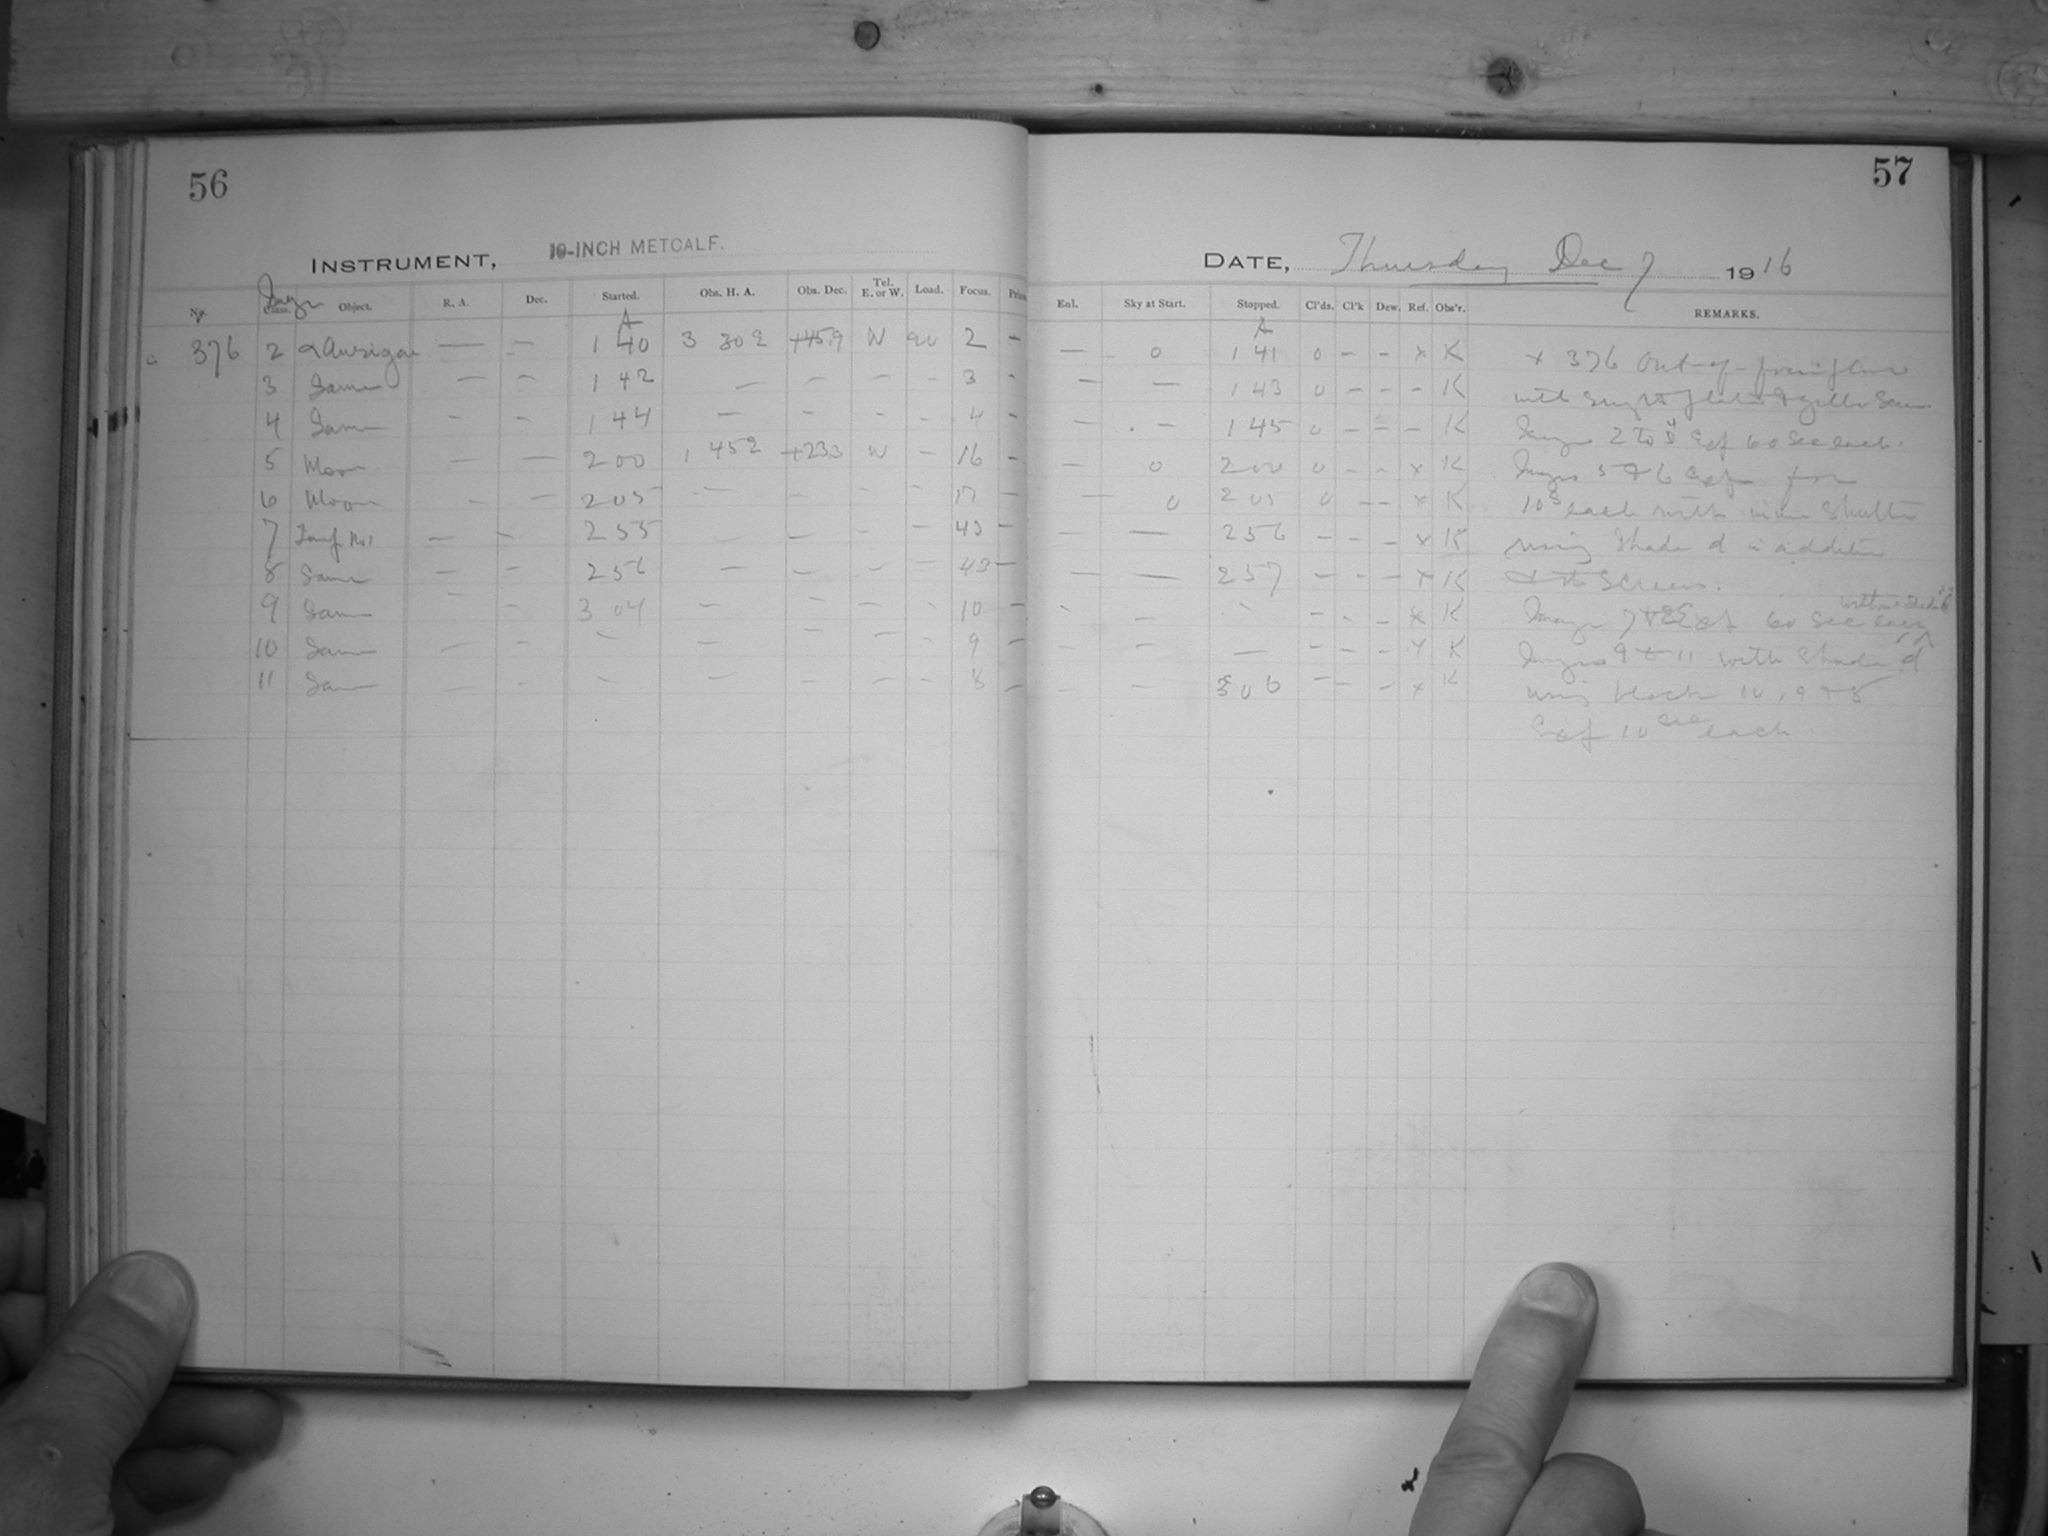 56
57
INSTRUMENT, 10-INCH METCALF.
DATE, Thursday Dec 7 1916
No. Class. Object. R. A. Dec. Started. Obs. H. A. Obs. Dec. Tel. E. or W. Load. Focus. Enl. Sky at Start. Stopped. Cl'ds. Cl'k Dew. Ref. Obs'r. REMARKS.
A A
376 2 α Aurigae — — 1 40 3 30 2 +45.9 W 90 2 — — 0 1 41 0 - - x K x 376 Out-of-focus
3 Same — — 1 42 — — — - 3 - — — 1 43 0 - - - K with
4 Same - - 1 44 — - - - 4 - — - 1 45 0 - = - K 2 to 4 Exp 60 sec each.
5 Moon — — 2 00 1 45 2 +23.3 W - 16 - — 0 2 00 0 - - x K 5 & 6 Exp for
6 Moon - — 2 05 — - - - 17 - — 0 2 05 0 - - x K 10s each with shutter
7 No 1 — - 2 55 - - - - 43 - - — 2 56 - - - x K using Shade d in addition
8 Same — - 2 56 — - - - 43 - — — 2 57 - - - x K to Screen.
9 Same - - 3 04 - - - - 10 - - - - - - x K Images 7 & 8 Exp 60 sec each without Shade d
10 Same — - - - - - - 9 - - - — - - - x K Images 9 to 11 with Shade d
11 Same - - - - - - - 8 - - - 3 06 - - - x K using 10, 9 & 8
Exp 10 sec each.